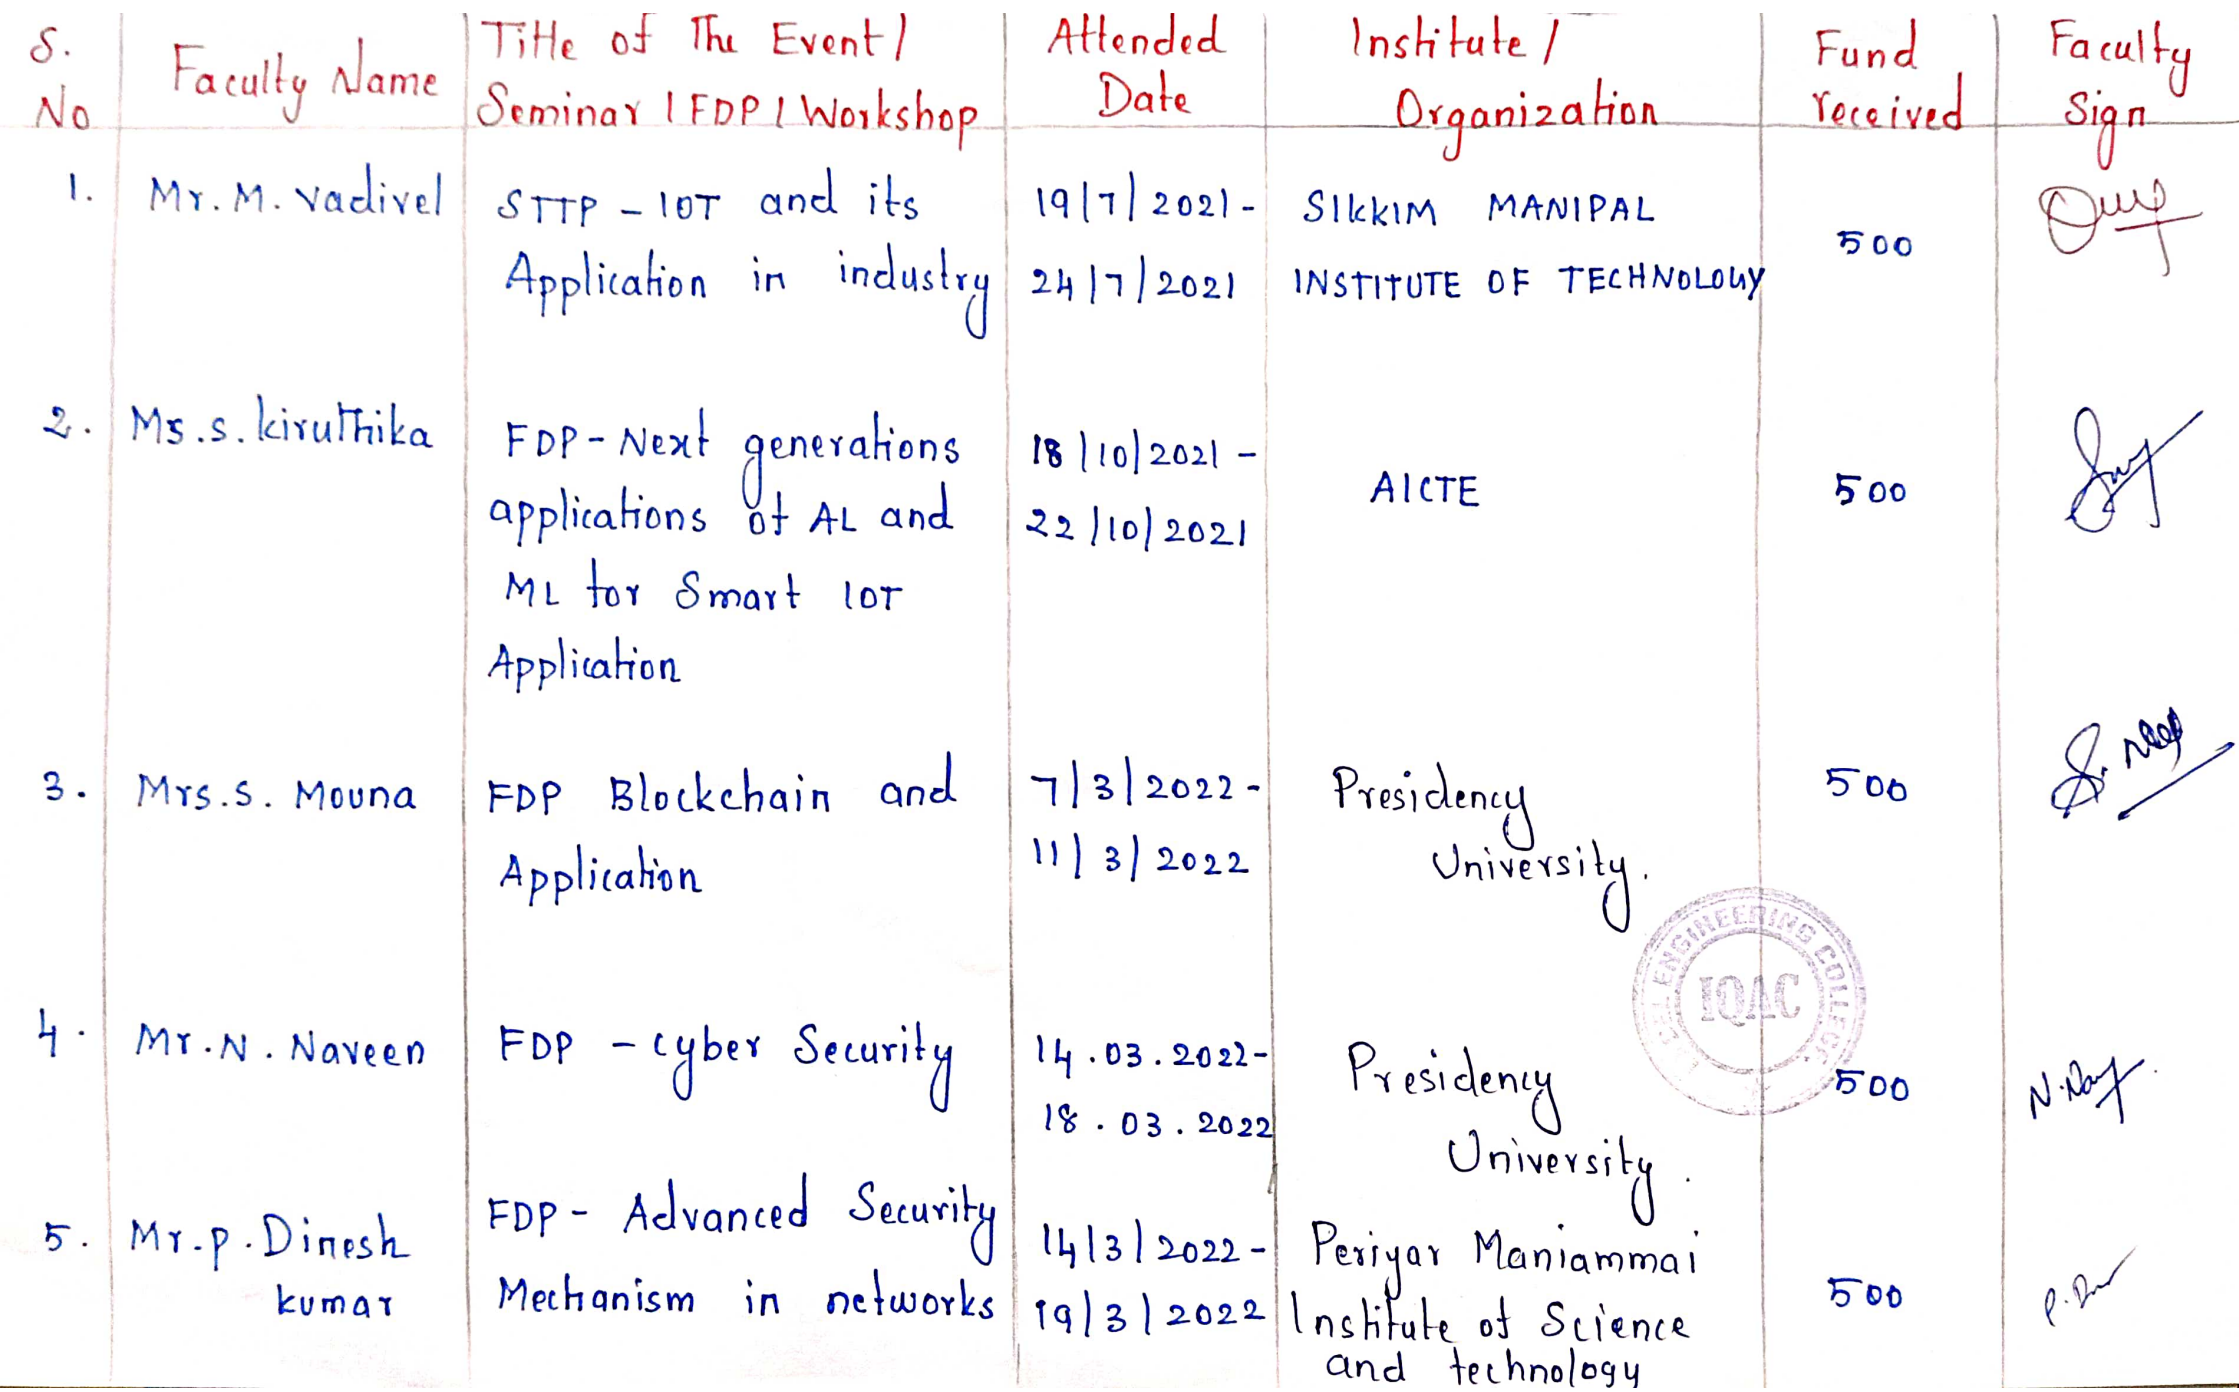 S. No
Faculty Name
Title of The Event /
Seminar / FDP / Workshop
Attended
Date
Institute /
Organization
Fund
received
Faculty
Sign
1.
Mr. M. Vadivel
STTP - IOT and its
Application in industry
19/7/2021 -
24/7/2021
SIKKIM MANIPAL
INSTITUTE OF TECHNOLOGY
500
2.
Ms. S. Kiruthika
FDP - Next generations
applications of AL and
ML for Smart IOT
Application
18/10/2021 -
22/10/2021
AICTE
500
3.
Mrs. S. Mouna
FDP Blockchain and
Application
7/3/2022 -
11/3/2022
Presidency
University.
500
ENGINEERING COLLEGE
IQAC
4.
Mr. N. Naveen
FDP - Cyber Security
14.03.2022 -
18.03.2022
Presidency
University.
500
5.
Mr. P. Dinesh
kumar
FDP - Advanced Security
Mechanism in networks
14/3/2022 -
19/3/2022
Periyar Maniammai
Institute of Science
and technology
500